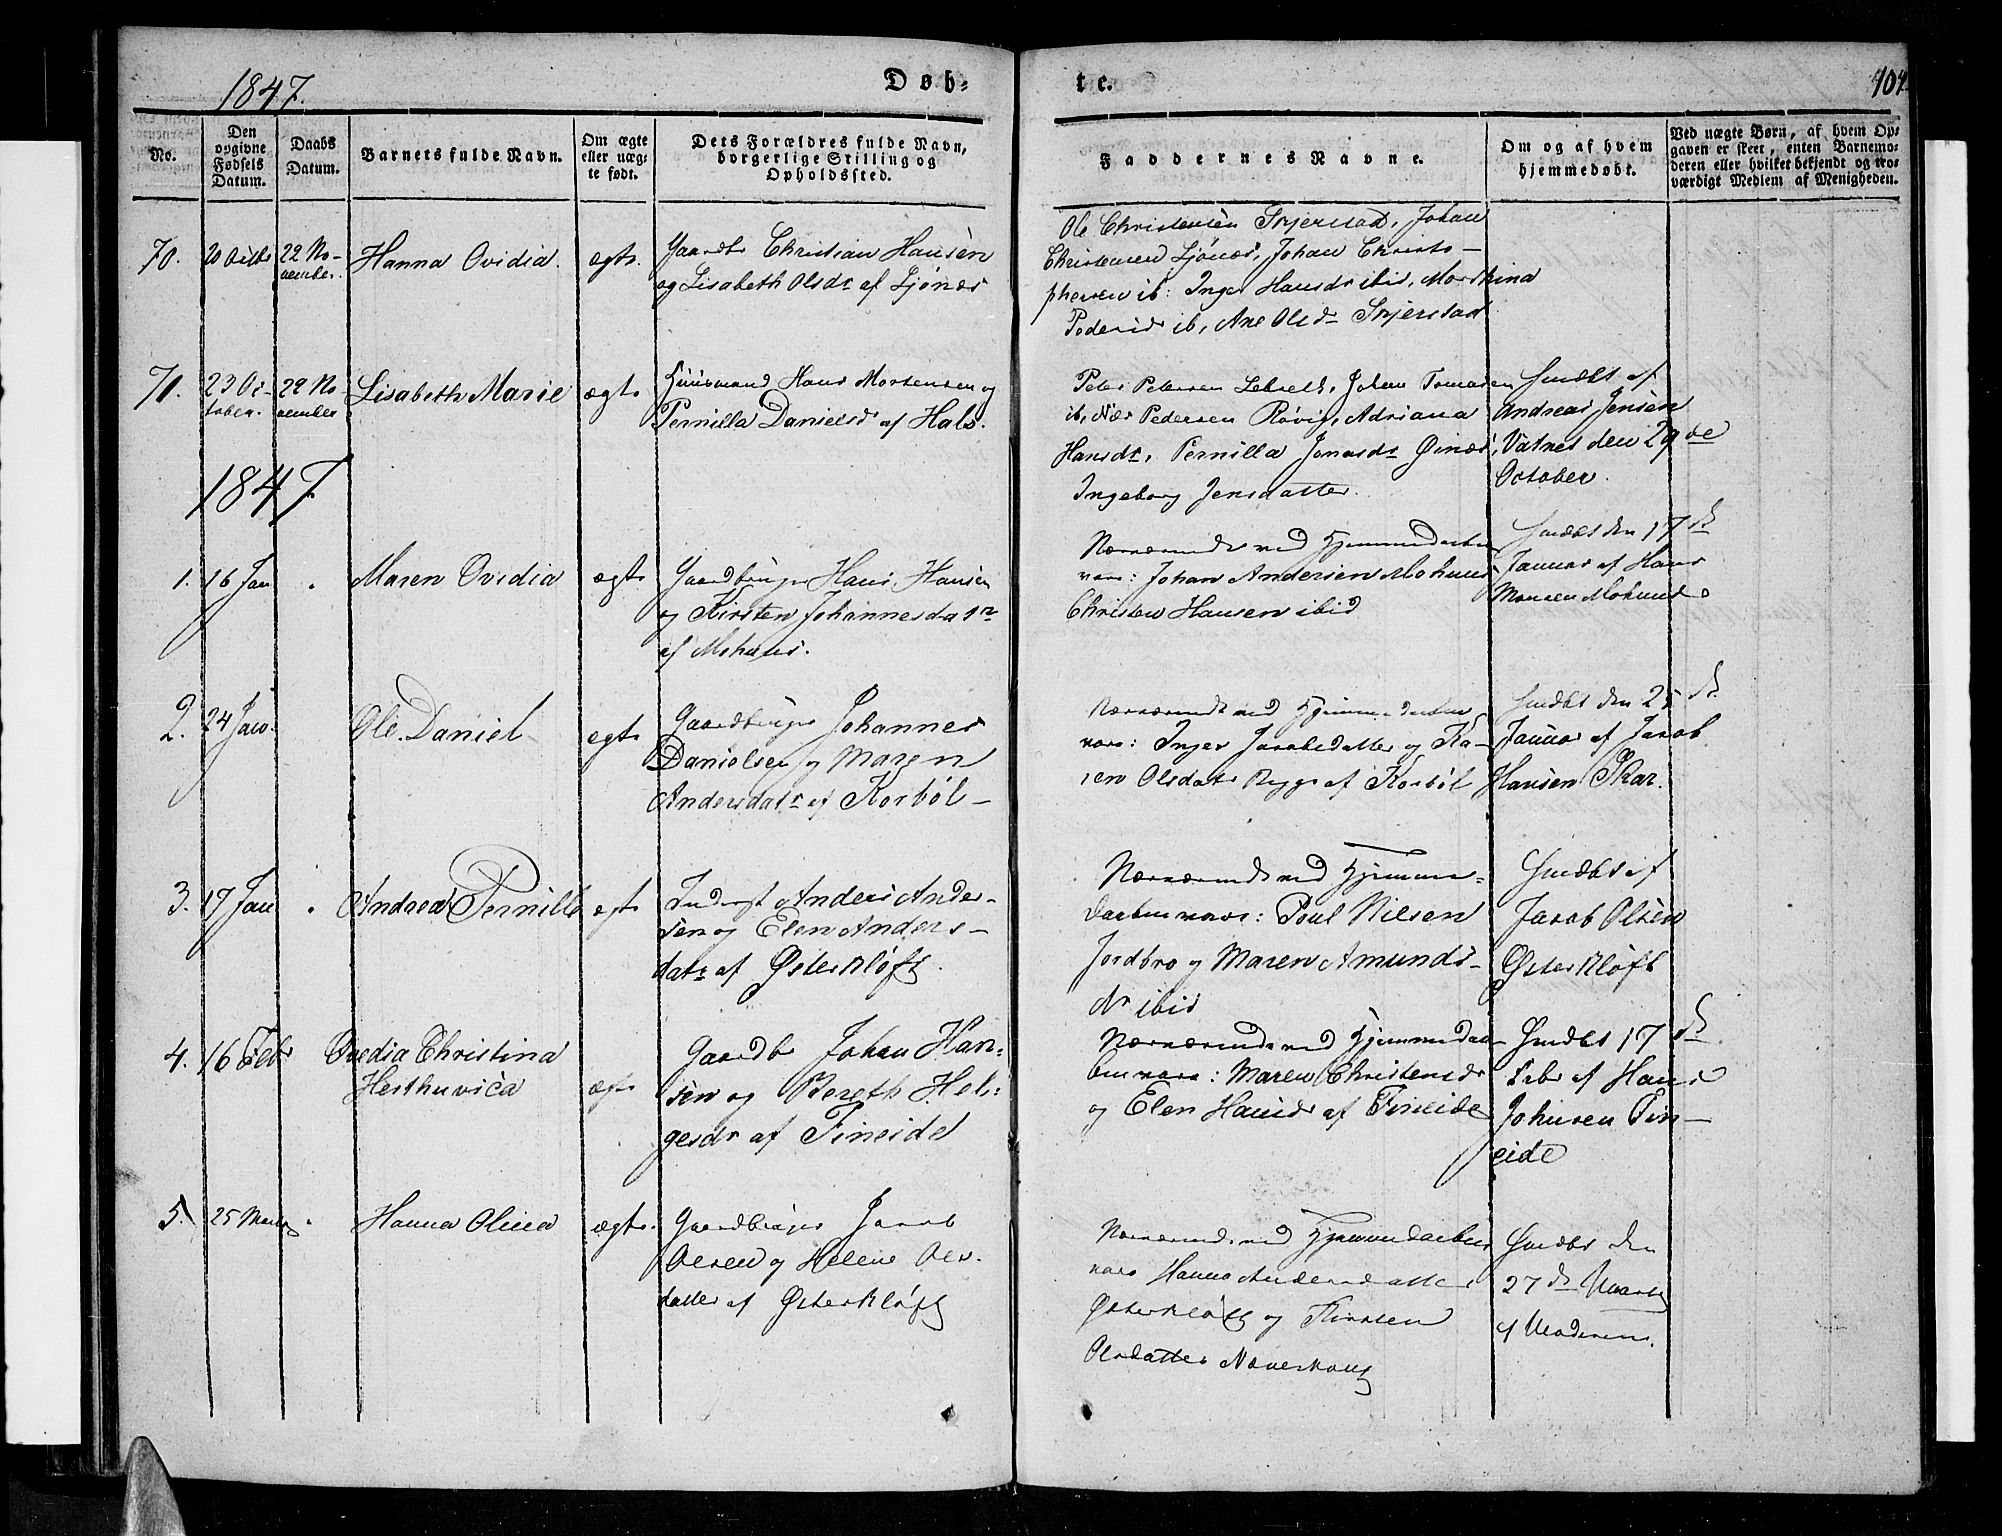 1847.
Døb-
te.
104.
No.
Den opgivne Fødsels Datum.
Daabs Datum.
Barnets fulde Navn.
Om ægte eller uægte født.
Dets Forældres fulde Navn, borgerlige Stilling og Opholdssted.
Faddernes Navne.
Om og af hvem hjemmedøbt.
Ved uægte Børn, af hvem Opgaven er skeet, enten Barnemoderen eller hvilket bekjendt og troværdigt Medlem af Menigheden.
70.
20 Octbr
22 No-
vember.
Hanna Ovidia.
ægte.
Gaardbr Christian Hansen
og Lisabeth Olsdr af Ljønes
Ole Christensen Skjerstad, Johan
Christensen Ljønes, Johan Christo-
phersen ib: Inger Hansdr ibid,
Pedersdr ib, Ane Olsdr Skjerstad
71.
23 Oc-
tober.
22 No
vember
Lisabeth Marie
ægte
Huusmand Hans Mortensen og
Pernilla Danielsd af Hals.
Peter Petersen Johan
ib, Pedersen Røvig, Adriana
Hansdr, Pernilla Jonasdr Øinæs,
Ingeborg Jensdatter.
Hmdbt af
Andreas Jensen
Vatnet den 29de
October.
1847
1.
16 Jan
Maren Ovidia
ægte
Gaardbruger Hans Hansen
og Kirsten Johannesdatr
af Mohuus.
Nærværende ved Hjemmedaaben
vare: Johan Andersen Mohuus
Christen Hansen ibid
Hmdbt den 17de
Januar af Hans
Monsen
2.
24 Jan.
Ole Daniel
egte
Gaardbruger Johannes
Danielsen og Maren
Andersdatr af Kosbøl-
Nærværende ved Hjemmedaaben
vare: Inger Jacobsdatter og Ka-
ren Olsdatr af Kosbøl
Hmdbt den 25de
Januar af Jacob
Hansen Skar.
3.
17 Jan
Andrea Pernilla
egte
Inderst Anders Ander-
sen og Elen Anders-
datr af Østerkløft.
Nærværende ved Hjemme-
daaben vare: Poul Nilsen
Jordbro og Maren Amunds-
dr ibid
Hmdbt af
Jacob Olsen
Østerkløft
4.
16 Febr
Ovedia Christina
Hesthuvica
ægte
Gaardbr Johan Han-
sen og Bereth Hel-
gesdr af Fineide
Nærværende ved Hjemmedaa-
ben vare: Maren Christensdr
og Elen Hansdr af Fineide
Hmdbt 17de
Febr af Hans
Johnsen Fin-
eide
5.
25 Marts
Hanna Olina
ægte.
Gaardbruger Jacob
Olsen og Helene Ols-
datter af Østerkløft
Nærværende ved Hjemmedaaben
vare Hanna Andersdatter
Østerkløft og Kirsten
Olsdatter Næverhoug
Hmdbt den
27de Marts
af Moderen.